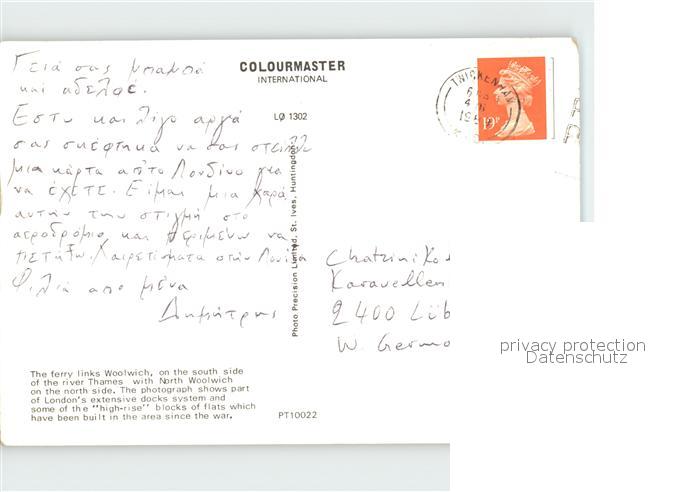 Γειά σας μπαμπά
και αδελφέ.
Εστω και λίγο αργά
σας σκέφτηκα να σας στείλω
μια κάρτα απ'το Λονδίνο για
να έχετε. Είμαι μια χαρά
αυτήν την στιγμή στο
αεροδρόμιο και περιμένω να
πετήξω. Χαιρετίσματα στην
Φιλιά απο μένα
Δημήτρης
COLOURMASTER
INTERNATIONAL
LO 1302
Photo Precision Limited, St. Ives, Huntingdon
TWICKENHAM
19P
Karavellen
2400 Lüb
W. Germa
privacy protection
Datenschutz
The ferry links Woolwich, on the south side
of the river Thames with North Woolwich
on the north side. The photograph shows part
of London's extensive docks system and
some of the "high-rise" blocks of flats which
have been built in the area since the war.
PT10022